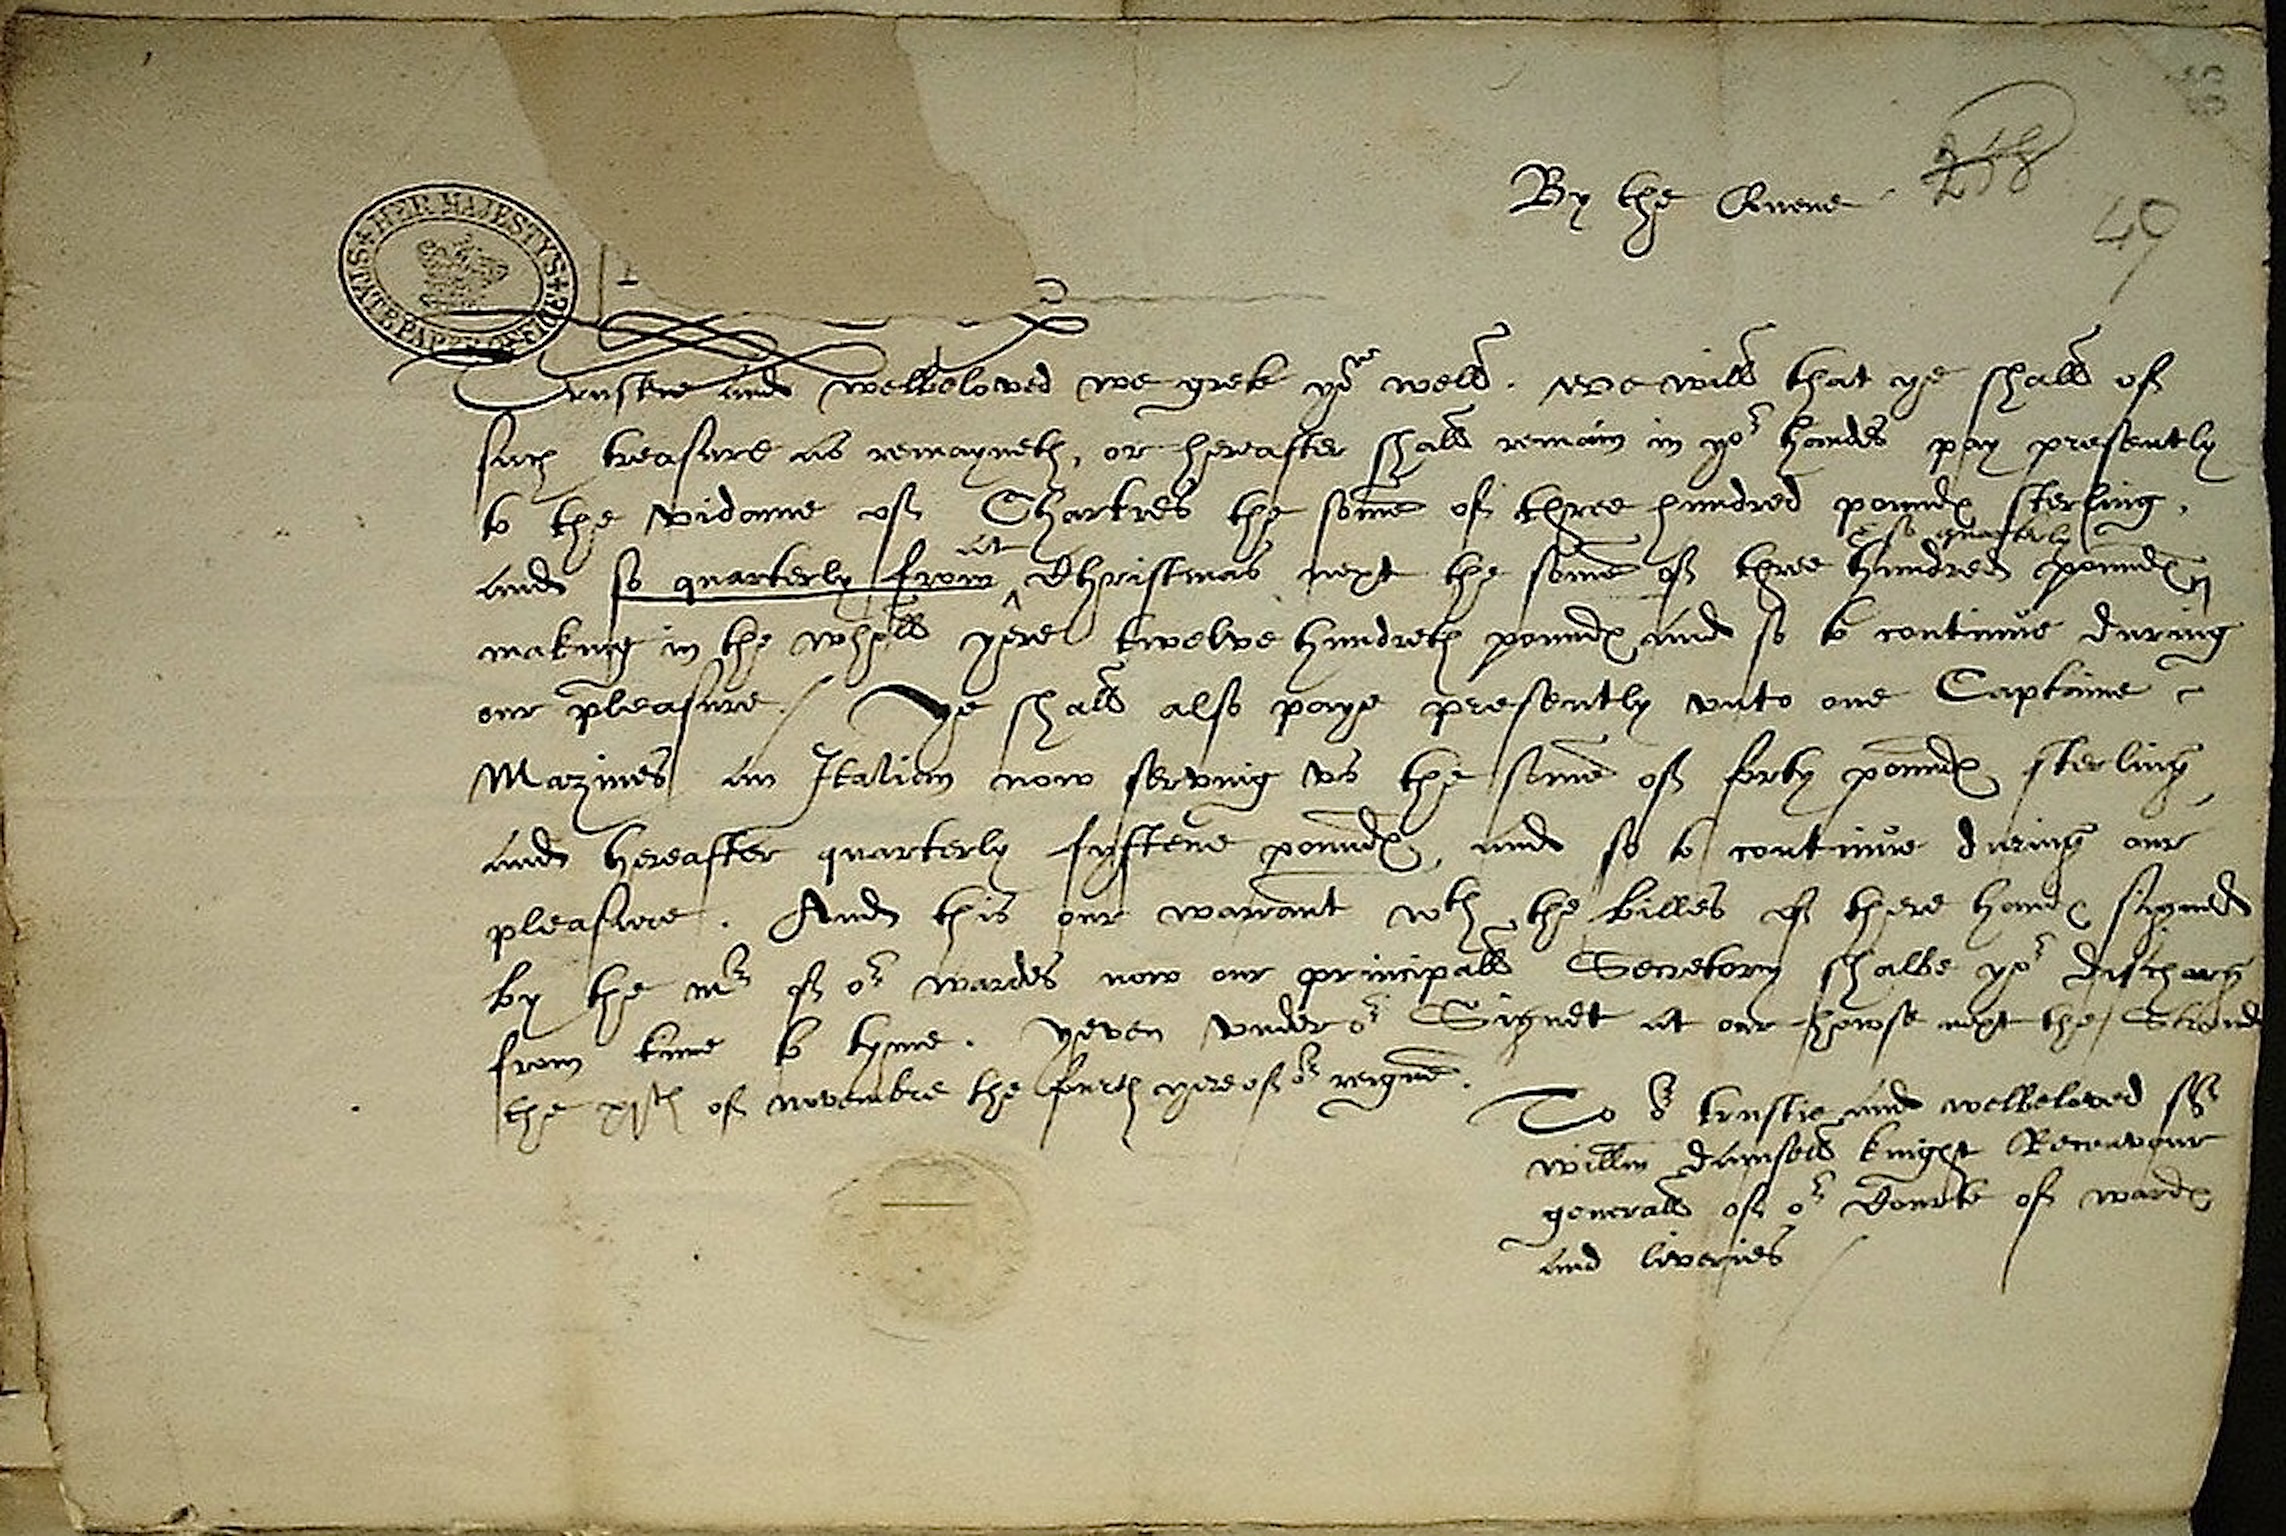 By the Quene
258
49
HER MAJESTY'S STATE PAPER OFFICE
Trustie and welbeloved we grete yo" well. we will that ye shall of
such treasure as remayneth, or hereafter shall remain in yor handes pay presently
to the vidame of Chartres the some of three hundred pounds sterling,
& so quarterly
and so quarterly from ^ at Christmas next the some of three hundred pounds
making in the wholl yere twelve hundreth pounds and so to continue during
our pleasure. / Ye shall also paye presently unto one Captaine
Mazines an Italian now serving us the some of forty pounds sterling,
and hereafter quarterly fyftene pounds, and so to continue during our
pleasure. And this our warrant wth the billes of there hands signed
by the mr of or wardes now our principall Secretory shalbe yor discharg
from time to tyme. Yeven under or Signet at our howse next the Strond
the xjth of novembre the fourth yere of or reigne.
To or trustie and welbeloved Sr
willm damsell knight Receavour
generall of or Courte of wards
and liveries /